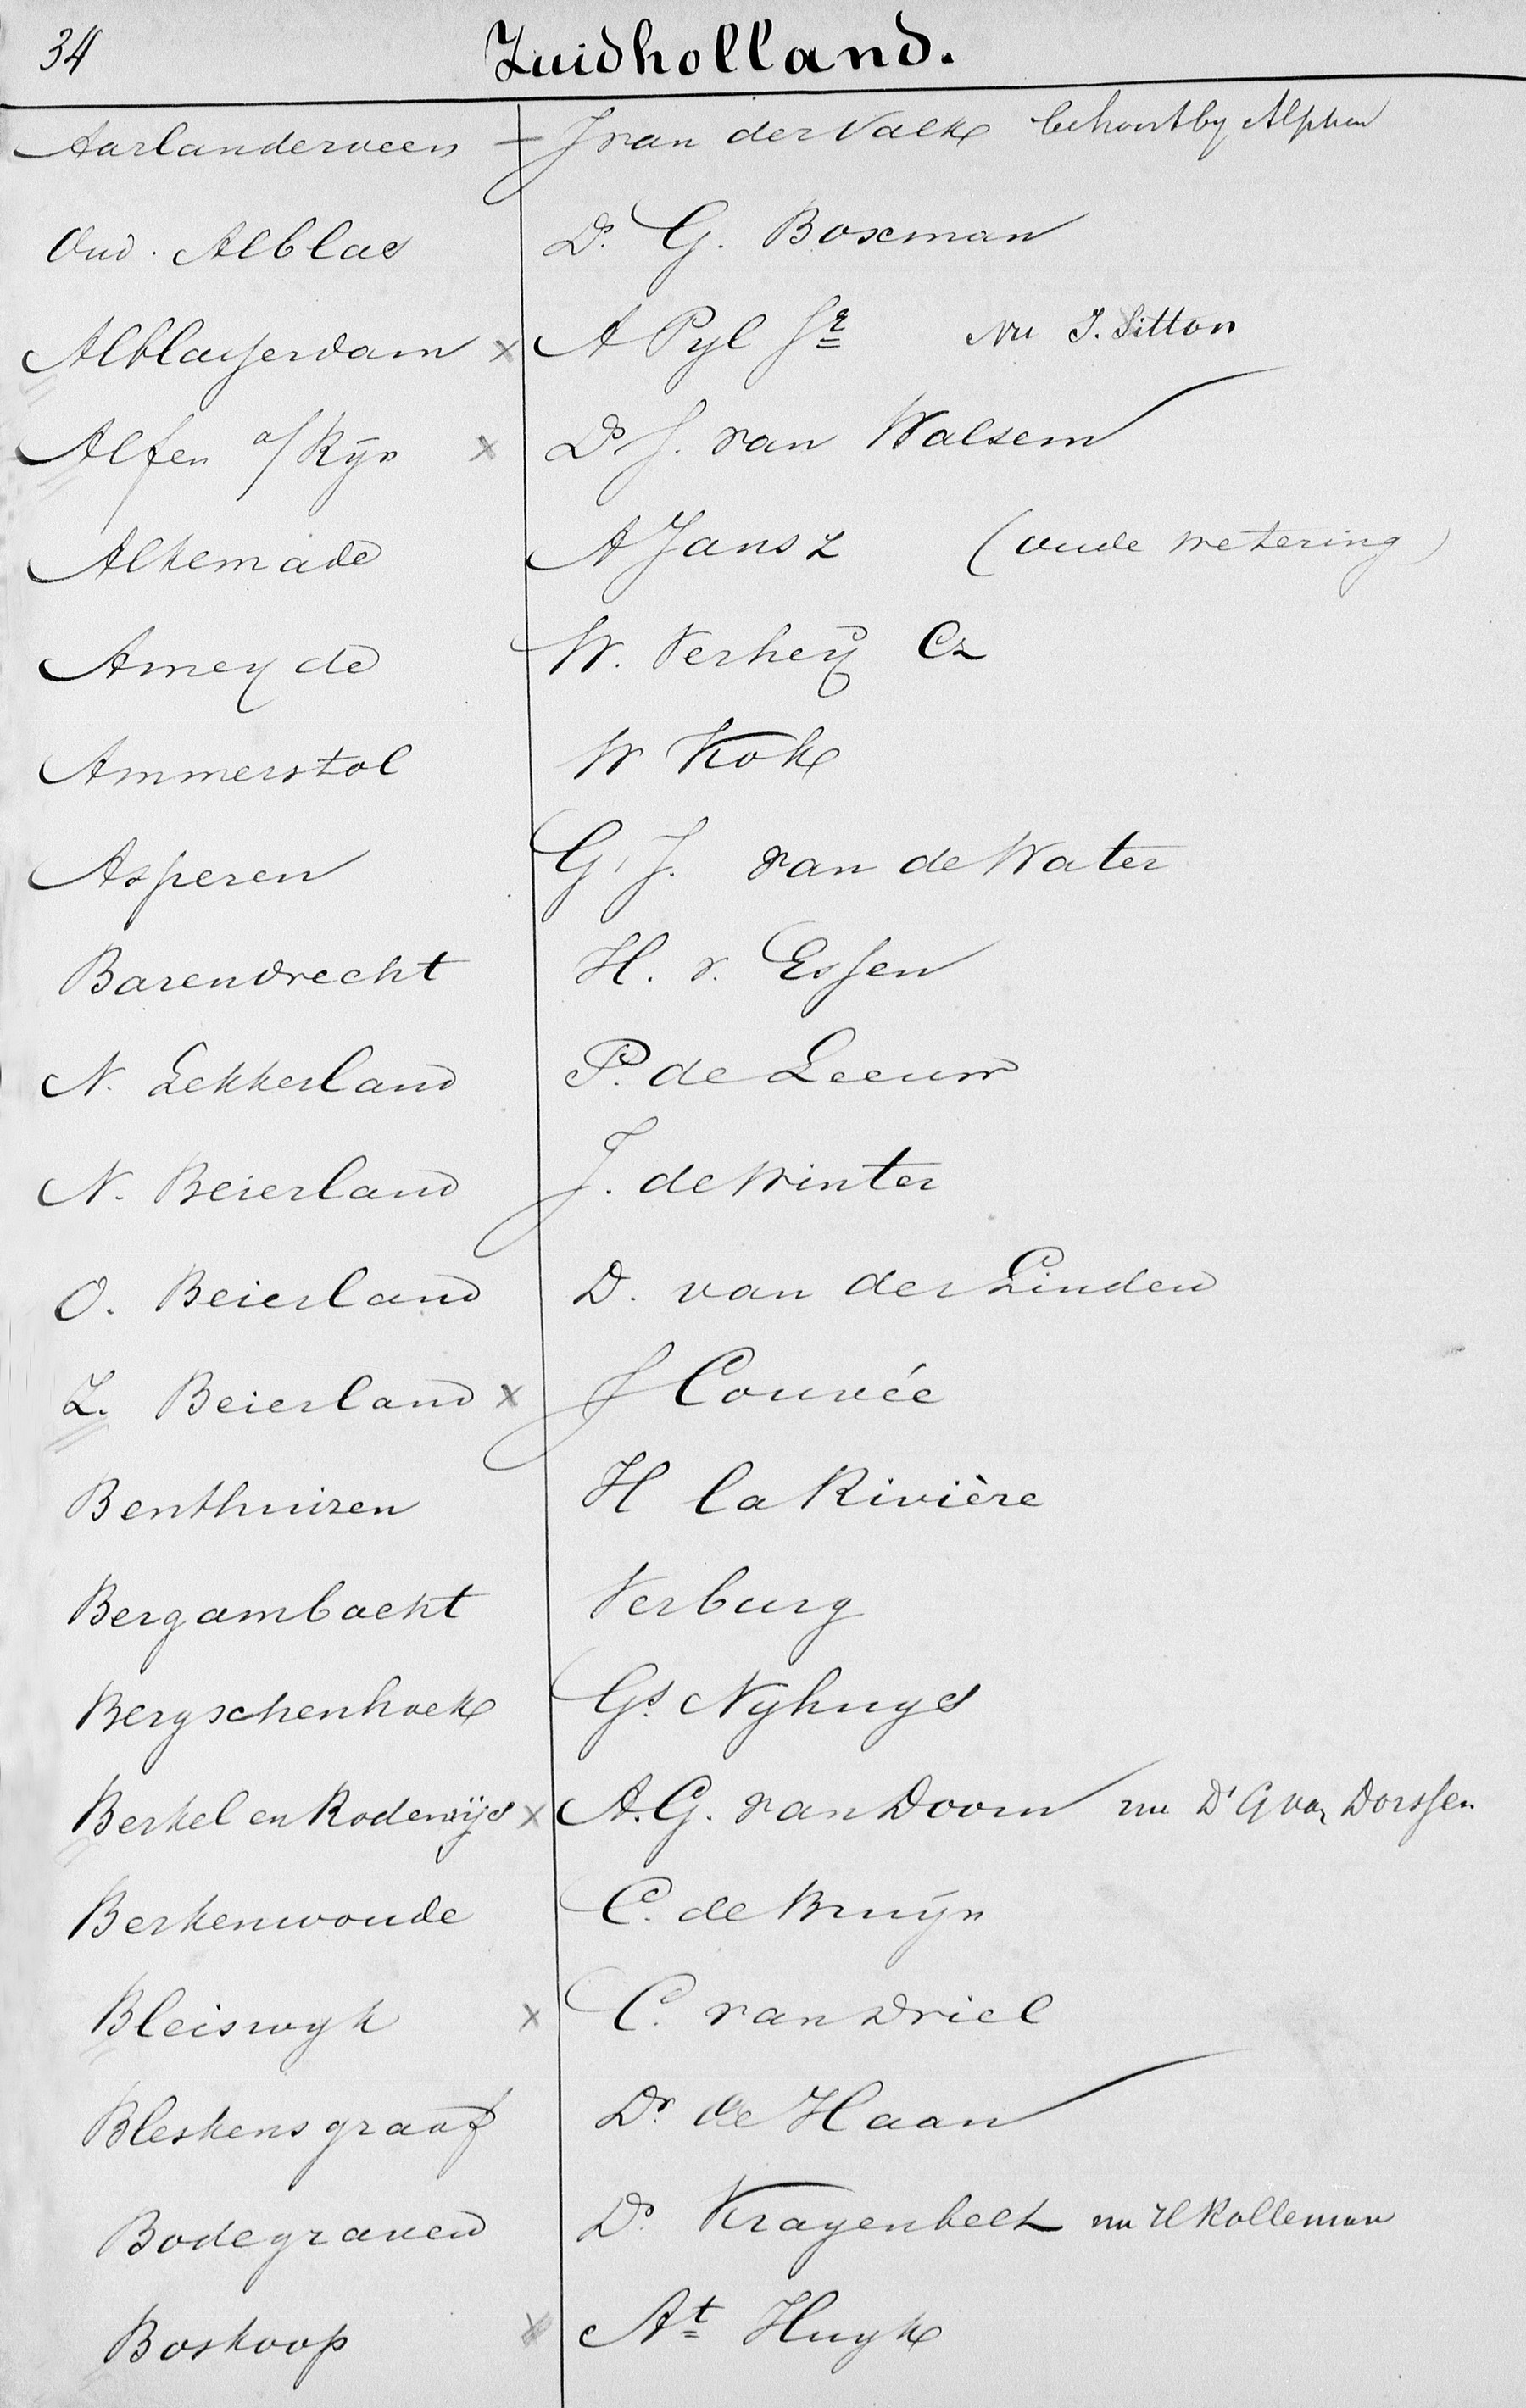 34 Zuidholland.
Aarlanderveen - J van der Valk behoort by Alphen
Oud. Alblas Ds. G. Boxman
Alblasserdam x A Pyl Sr Nu J. Sitton
Alfen a/Rijn x Ds J. van Walsem
Alkemade A Jansz (oude wetering)
Ameyde W. Verheij Cz
Ammerstol W Kok
Asperen G. J. van de Water
Barendrecht H. v. Essen
N. Lekkerland P. de Leeuw
N. Beierland J. de Winter
O. Beierland D. van der Linden
Z. Beierland x J Couvée
Benthuizen H la Rivière
Bergambacht Verburg
Bergschenhoek Gs. Nyhuys
Berkel en Rodenrijs x A. G. van Doorn nu Ds G van Dorssen
Berkenwoude C. de Bruijn
Bleiswyk x C. van Driel
Bleskensgraaf Dr de Haan
Bodegraven Ds. Kragenbelt nu H Kolleman
Boskoop x At Huyk